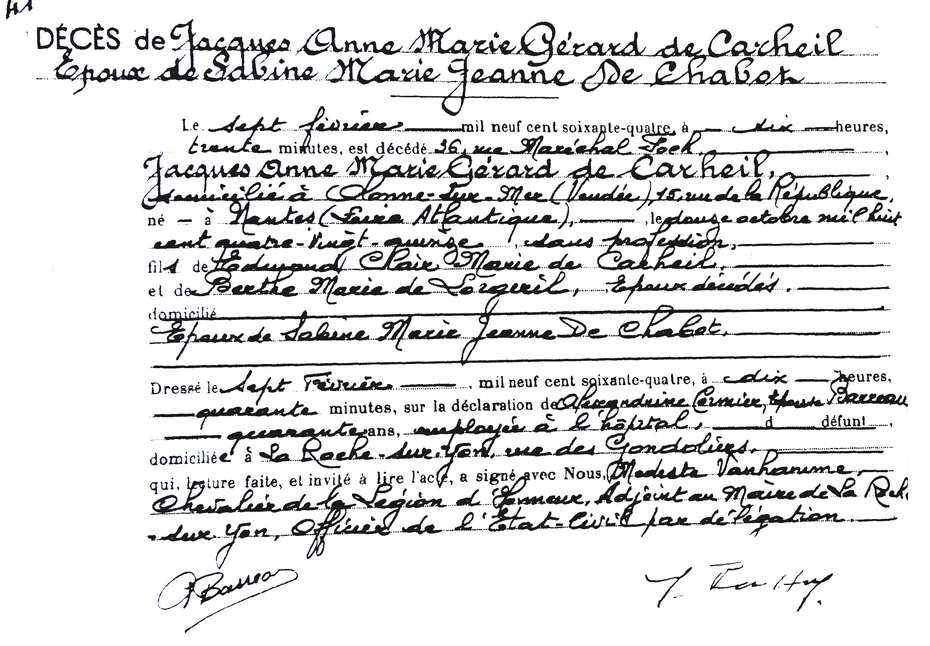 41
DÉCÈS de Jacques Anne Marie Gérard de Carheil
Epoux de Sabine Marie Jeanne De Chabot
Le sept février mil neuf cent soixante-quatre, à dix heures,
trente minutes, est décédé 36, rue Maréchal Foch,
Jacques Anne Marie Gérard de Carheil,
domicilié à Olonne-sur-Mer (Vendée), 15, rue de la République,
né - à Nantes (Loire Atlantique), le douze octobre mil huit
cent quatre-vingt-quinze, sans profession,
fils de Edmond Clair Marie de Carheil,
et de Berthe Marie de Lorgeril, Epoux décédés.
domicilié
Epoux de Sabine Marie Jeanne De Chabot.
Dressé le sept Février, mil neuf cent soixante-quatre, à dix heures,
quarante minutes, sur la déclaration de Alexandrine Cornier, Epouse Barreau
quarante ans, employée à l'hôpital, d défunt,
domiciliée à La Roche-sur-Yon, rue des Gondoliers,
qui, lecture faite, et invité à lire l'acte, a signé avec Nous, Modeste Vanhamme,
Chevalier de la Légion d'Honneur, Adjoint au Maire de La Roche
-sur-Yon, Officier de l'Etat-Civil par délégation.
Barreau